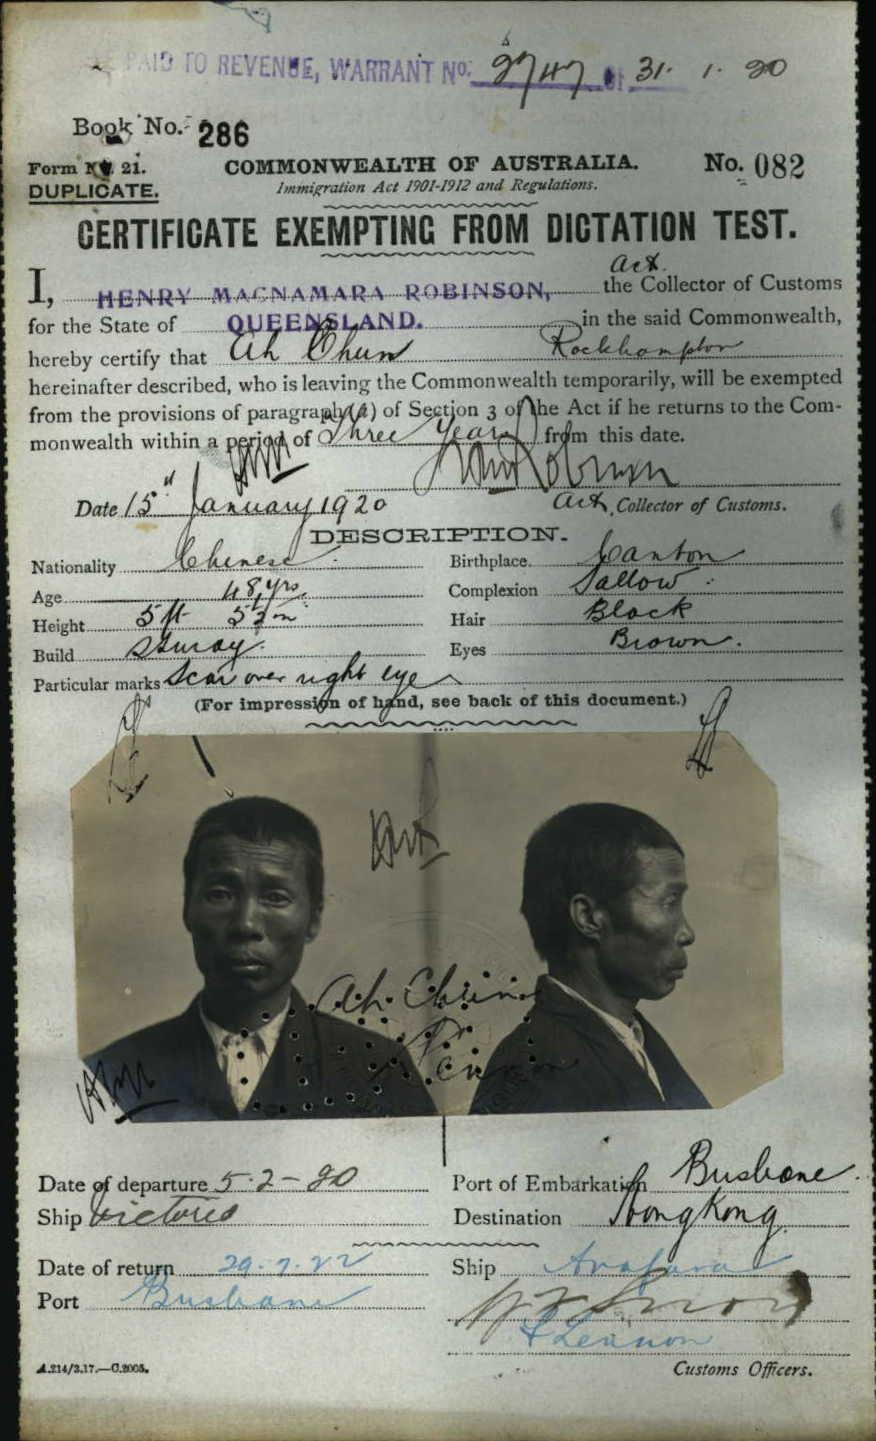 PAID TO REVENUE, WARRANT No. 2747 OF 31. 1. 20
Book No. 286
Form No. 21. COMMONWEALTH OF AUSTRALIA. No. 082
DUPLICATE. Immigration Act 1901-1912 and Regulations.
CERTIFICATE EXEMPTING FROM DICTATION TEST.
Act.
I, HENRY MACNAMARA ROBINSON, the Collector of Customs
for the State of QUEENSLAND. in the said Commonwealth,
hereby certify that Ah Chun Rockhampton
hereinafter described, who is leaving the Commonwealth temporarily, will be exempted
from the provisions of paragraph (a) of Section 3 of the Act if he returns to the Com-
monwealth within a period of Three Years from this date.
Date 15th January 1920 Act. Collector of Customs.
DESCRIPTION.
Nationality Chinese. Birthplace. Canton
Age 48 yrs. Complexion Sallow.
Height 5 ft Hair Black
Build Sturdy. Eyes Brown.
Particular marks Scar over right eye
(For impression of hand, see back of this document.)
Ah Chun
Date of departure 5-2-20 Port of Embarkation Brisbane.
Ship Victoria Destination Hong Kong.
Date of return 29.7.22 Ship Arafura
Port Brisbane
Lennon
A.214/3.17.—C.2005. Customs Officers.